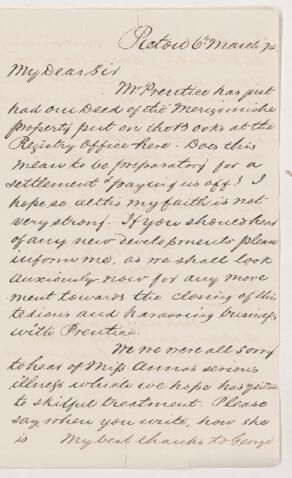 Pictou 6th March 74
My Dear Sir
Mr Prentice has just
had our Deed of the Merigomishe
property put on the Books at the
Registry Office here. Does this
mean to be preparatory for a
settlement & paying us off? I
hope so altho my faith is not
very strong. If you should hear
of any new developments please
inform me, as we shall look
anxiously now for any move
ment towards the closing of this
tedious and harassing business
with Prentice.
We were all sorry
to hear of Miss Annas serious
illness which we hope has yielded
to skilful treatment. Please
say when you write, how she
is My best thanks to George